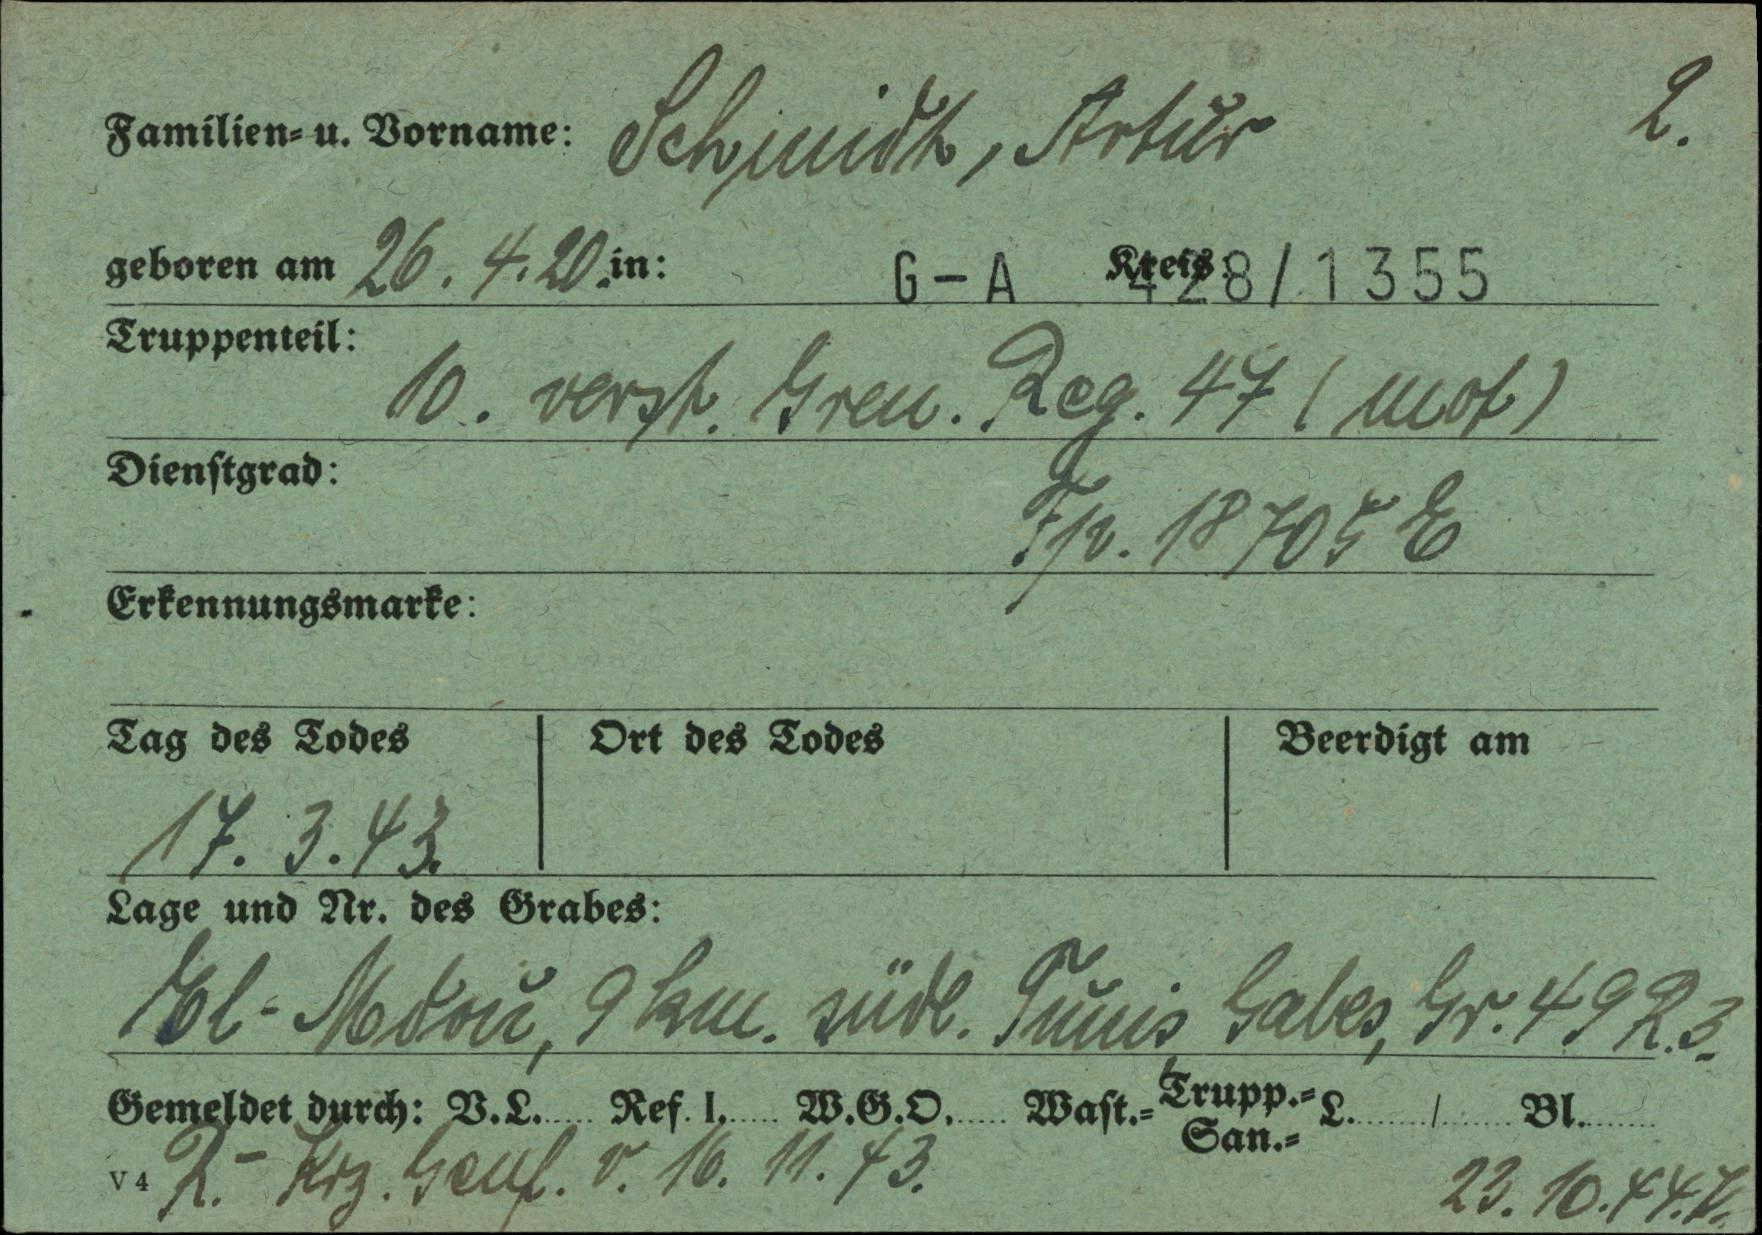 2.
Familien- u. Vorname: Schmidt, Artur
geboren am 26. 4. 20. in: G-A Kreis: 428/1355
Truppenteil:
10. verst. Gren. Reg. 47 (mot)
Dienstgrad:
Fp. 18705 E
Erkennungsmarke:
Tag des Todes Ort des Todes Beerdigt am
17. 3. 43.
Lage und Nr. des Grabes:
El-Mdou, 9 km. südl. Tunis Gabes, Gr. 49 R. 3.
Gemeldet durch: V.L..... Ref. I..... W.G.O..... Wast.- Trupp.- L......./....... Bl.......
San.-
V 4 R.- Krz. Genf. v. 16. 11. 43.
23. 10. 44.